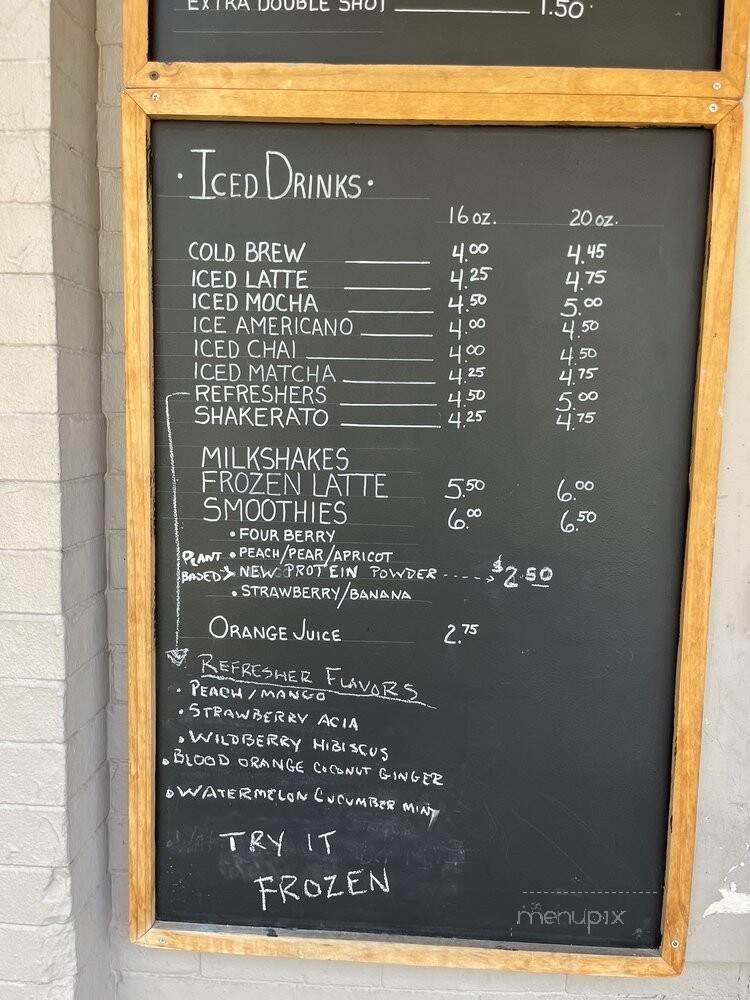 EXTRA DOUBLE SHOT 1.50
· ICED DRINKS ·
16 oz. 20 oz.
COLD BREW 4.00 4.45
ICED LATTE 4.25 4.75
ICED MOCHA 4.50 5.00
ICE AMERICANO 4.00 4.50
ICED CHAI 4.00 4.50
ICED MATCHA 4.25 4.75
REFRESHERS 4.50 5.00
SHAKERATO 4.25 4.75
MILKSHAKES
FROZEN LATTE 5.50 6.00
SMOOTHIES 6.00 6.50
• FOUR BERRY
• PEACH/PEAR/APRICOT
PLANT BASED > NEW PROTEIN POWDER ----> $2.50
• STRAWBERRY/BANANA
ORANGE JUICE 2.75
REFRESHER FLAVORS
• PEACH/MANGO
• STRAWBERRY ACIA
• WILDBERRY HIBISCUS
• BLOOD ORANGE COCONUT GINGER
• WATERMELON CUCUMBER MINT
TRY IT
FROZEN
menupix